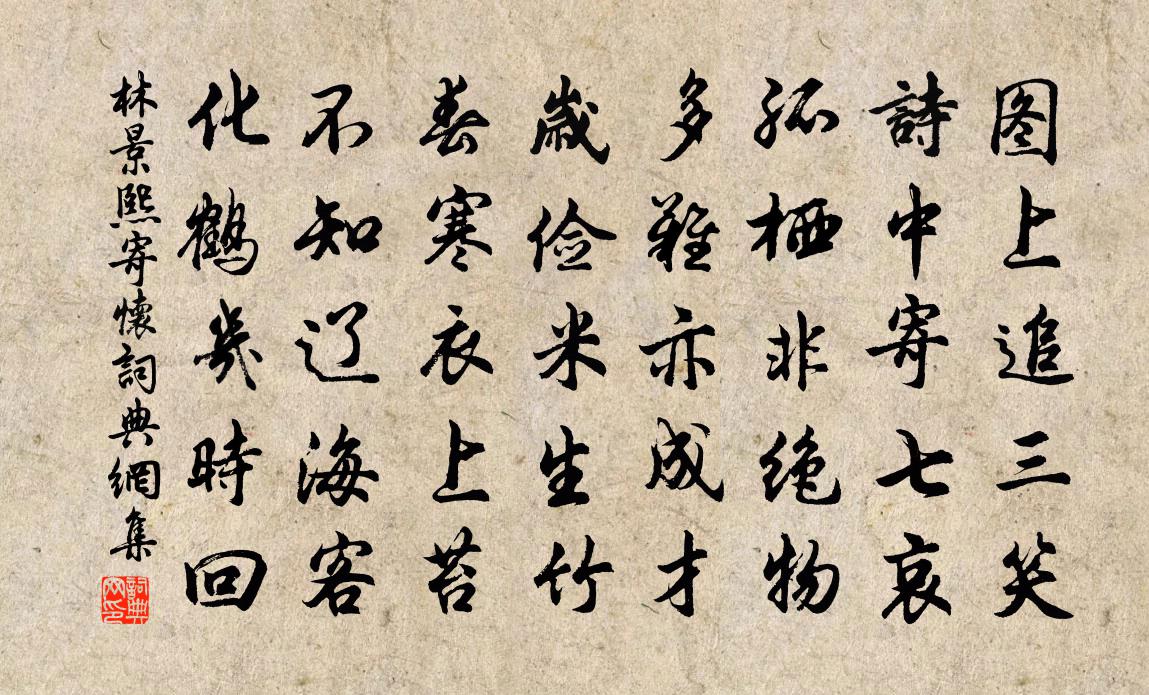 图上追三笑
詩中寄七哀
孤栖非绝物
多難亦成才
歲俭米生竹
春寒衣上苔
不知辽海客
化鶴幾時回
林景熙寄懷詞典網集
詞典网印